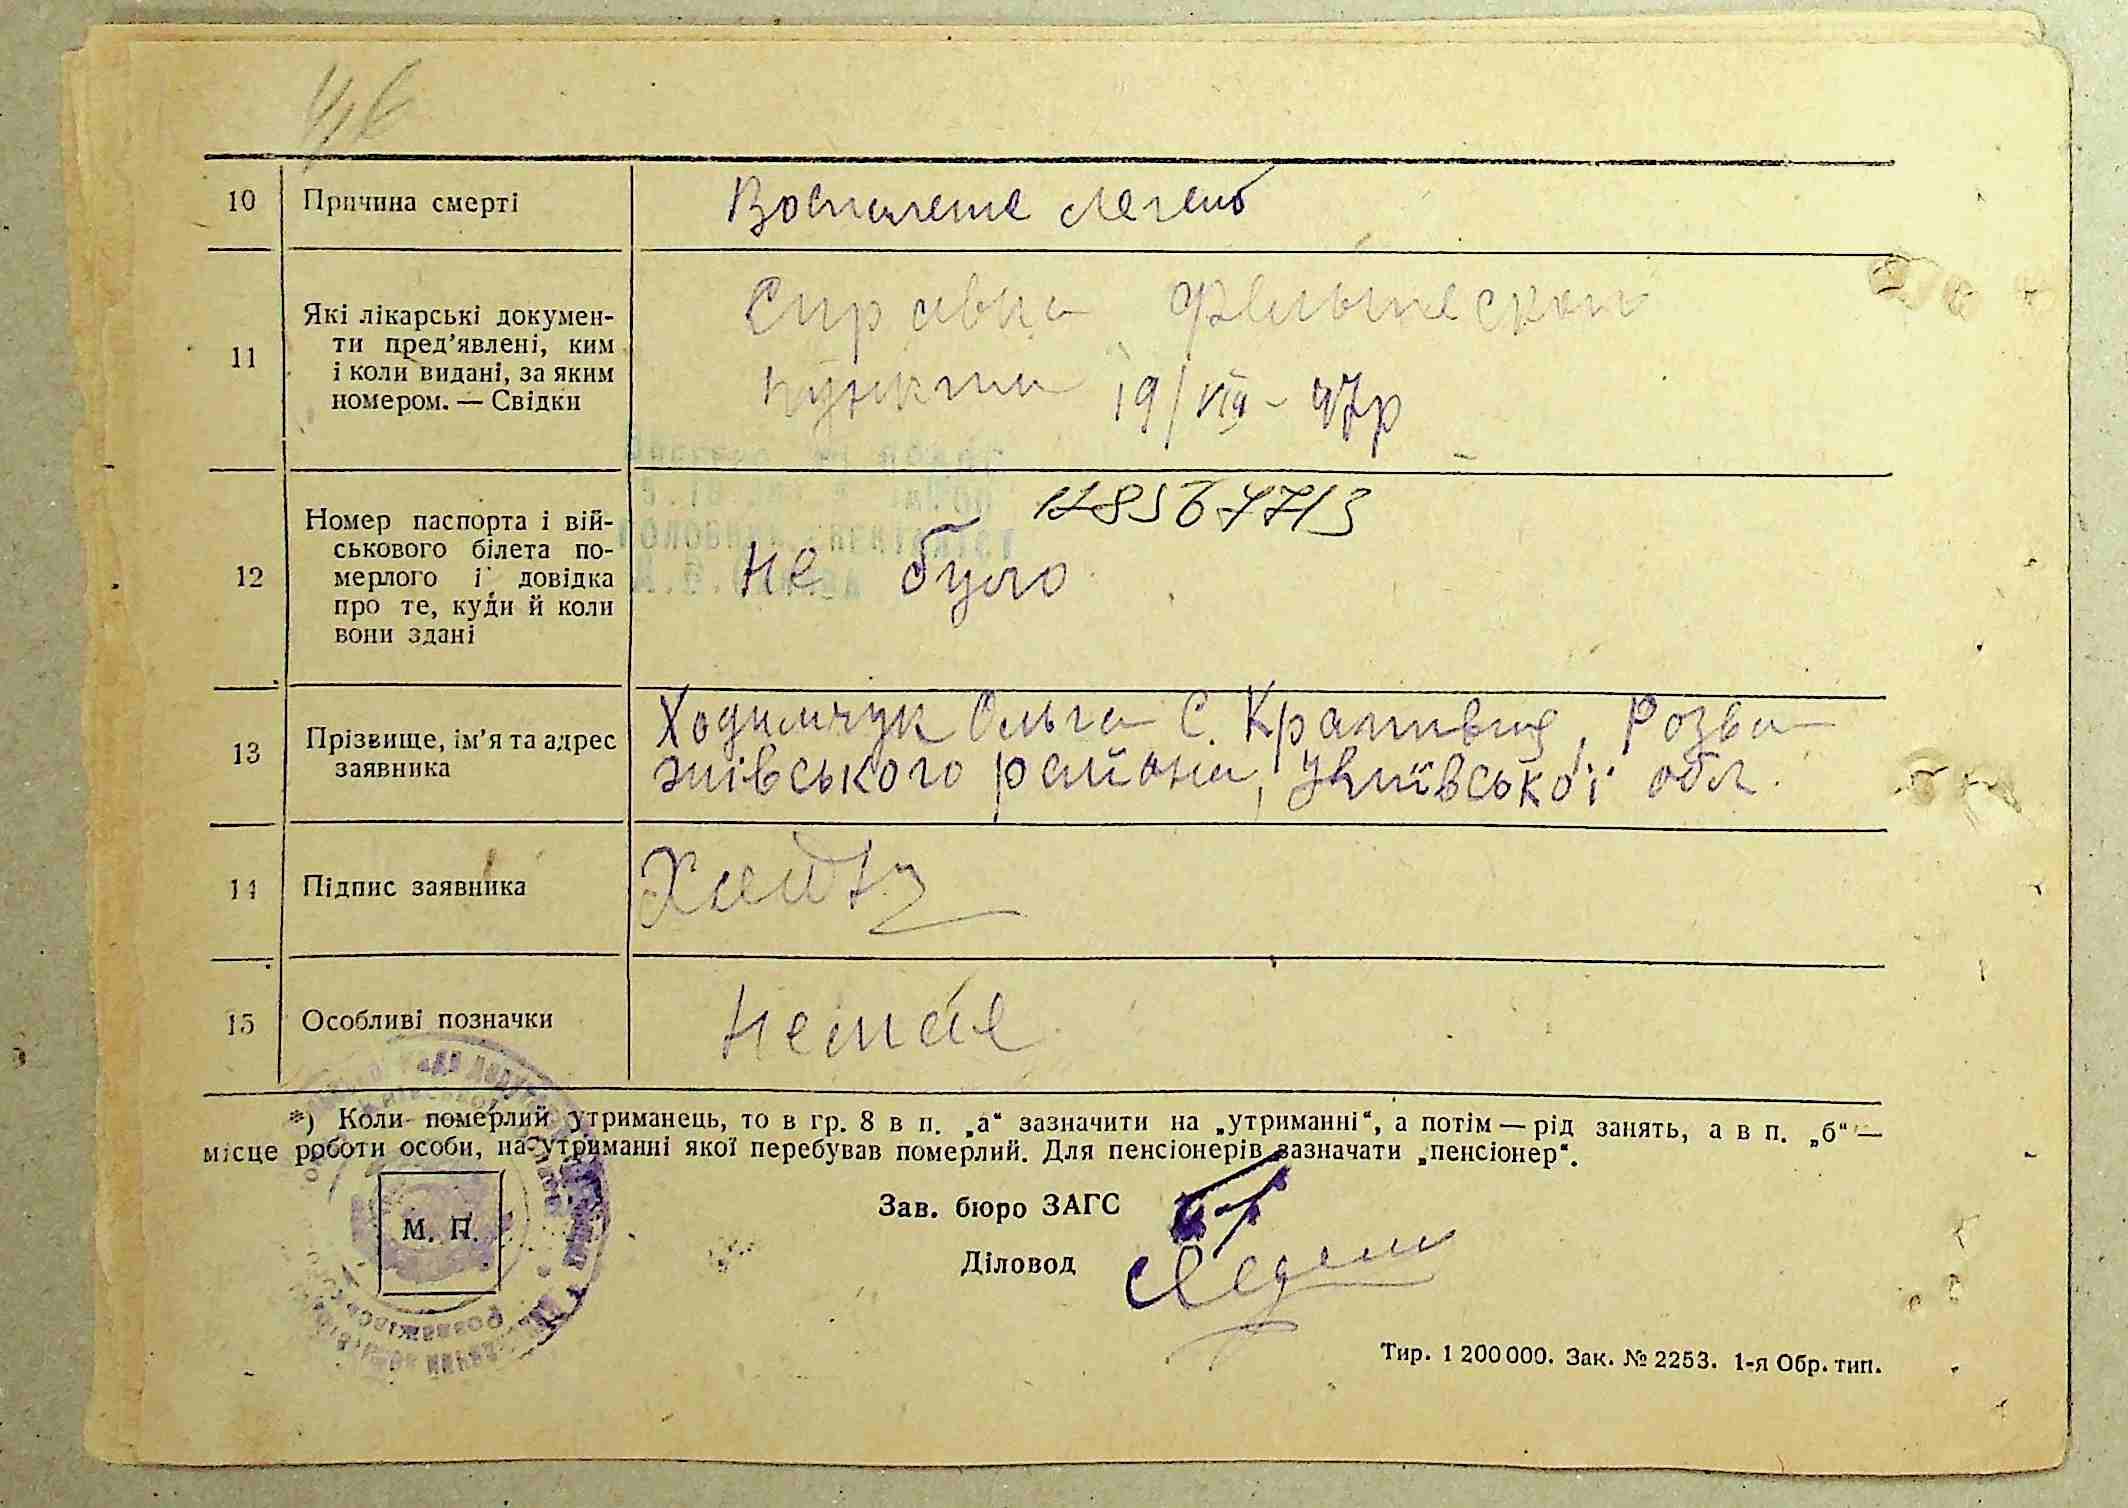 46
10 Причина смерті Воспаление легень
11 Які лікарські докумен-
ти пред’явлені, ким
і коли видані, за яким
номером. — Свідки
Справка фельшескоп
пункта 19/VIII - 47р
12 Номер паспорта і вій-
ськового білета по-
мерлого і довідка
про те, куди й коли
вони здані
Не було
13 Прізвище, ім’я та адрес
заявника
Ходимчук Ольга С. Крапивня, Розва
жівського района, Київської обл.
14 Підпис заявника
15 Особливі позначки Немае
*) Коли померлий утриманець, то в гр. 8 в п. „а“ зазначити на „утриманні“, а потім — рід занять, а в п. „б“ —
місце роботи особи, на утриманні якої перебував померлий. Для пенсіонерів зазначати „пенсіонер“.
Зав. бюро ЗАГС
Діловод
М. П.
Тир. 1 200 000. Зак. № 2253. 1-я Обр. тип.